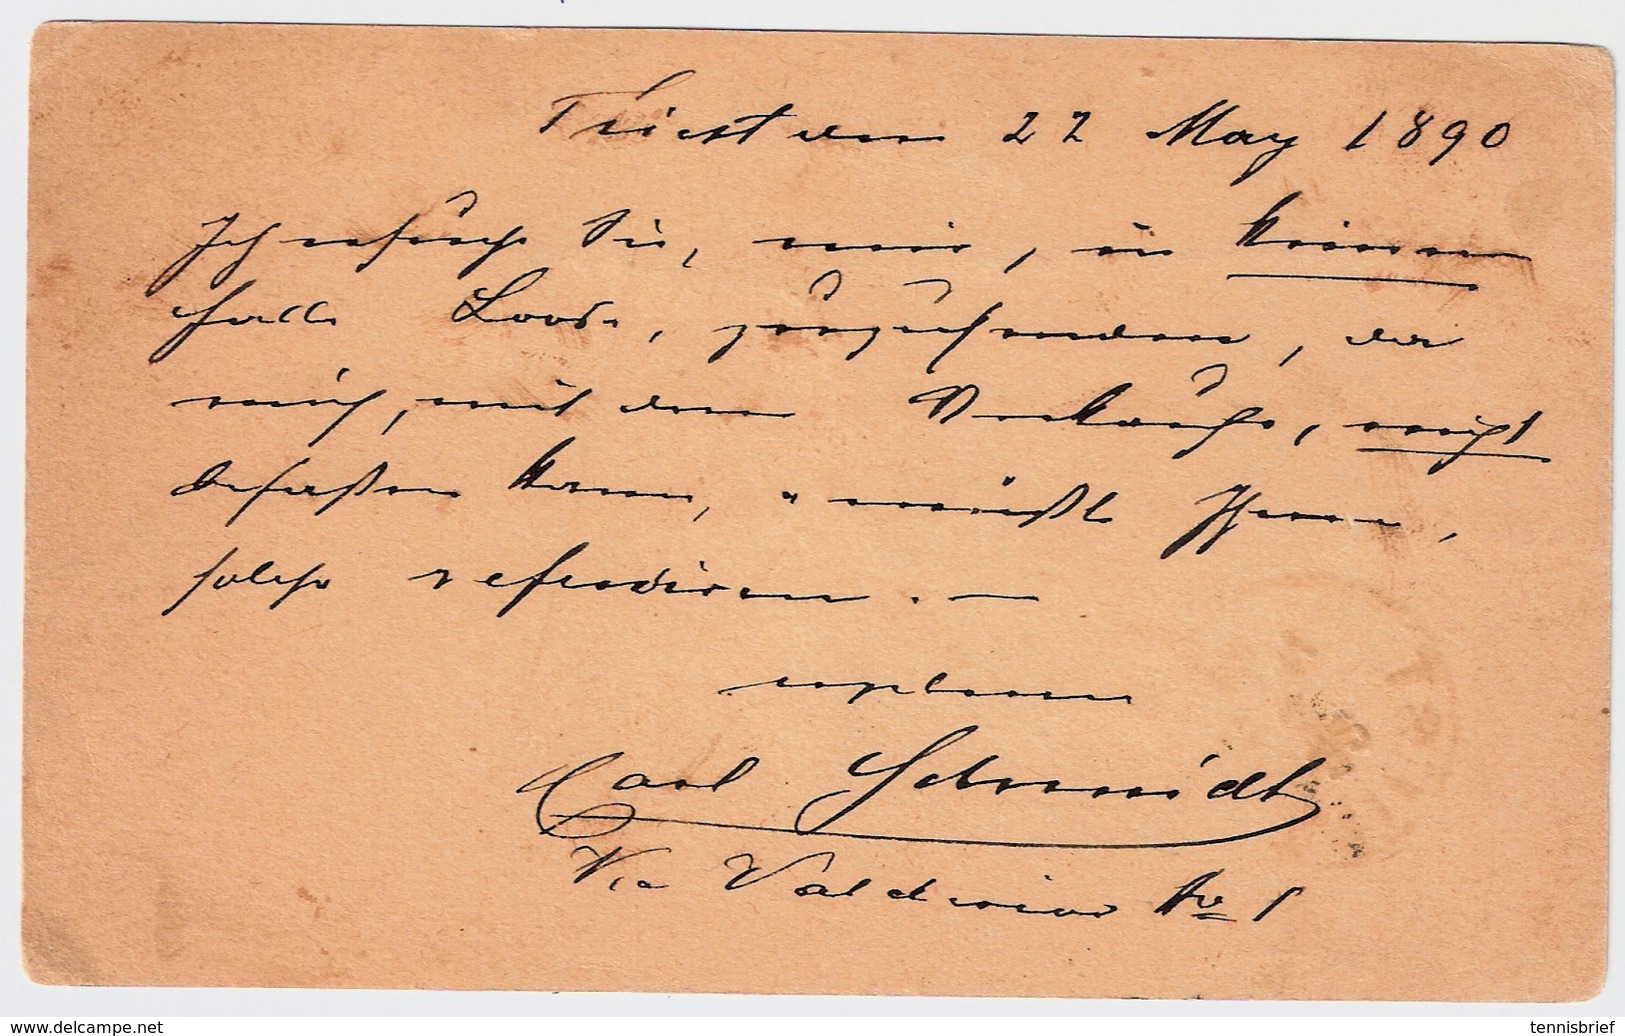 Triest den 22 May 1890
Ich ersuche Sie, mir, in keinem
Falle Loose, zuzusenden, da
mich, mit dem Verkaufe, nicht
befaßen kann, u müßte Ihnen,
solche refusiren. —
Carl Schmidt
Via Valdirivo No 1
tennisbrief